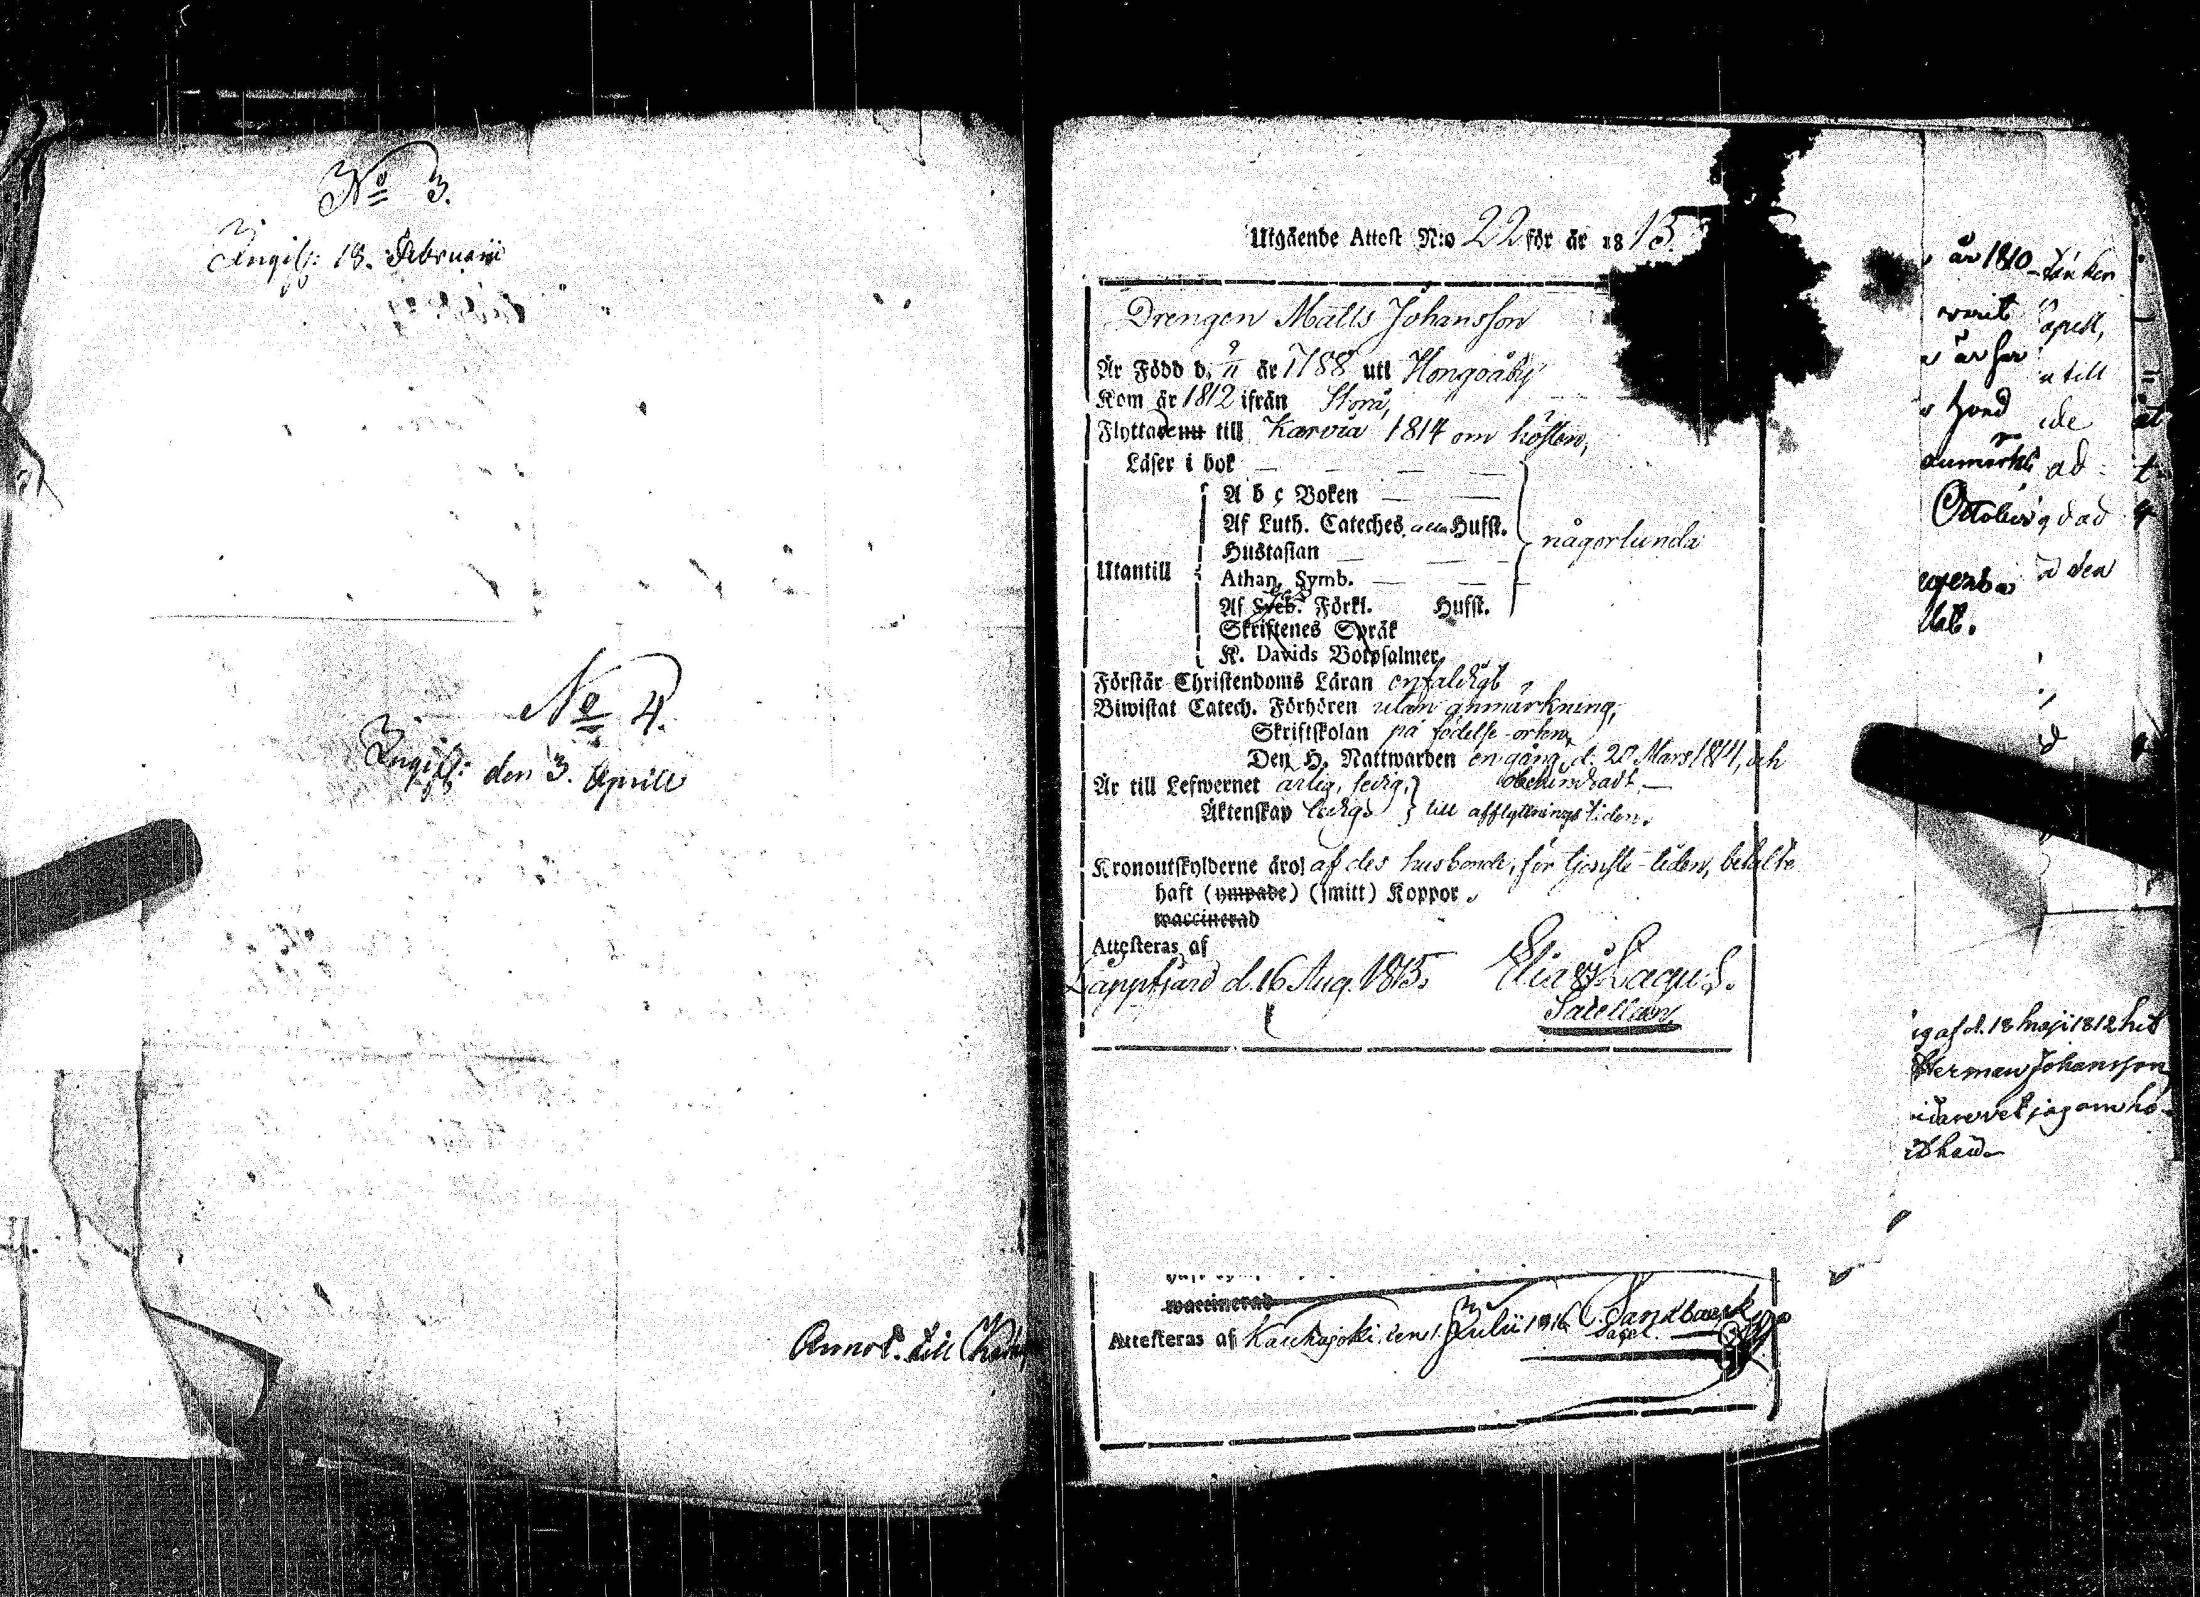 No 3.
Ingifs: 18. Februarii
No 4.
Ingifs: den 3. Aprill
Annot. till
Utgående Attest N:o 22 för år 1815.
Drengen Matts Johansson
Är Född d. 9/11 år 1788 uti Hongoåby
Kom år 1812 ifrån Storå,
Flyttade till Karvia 1814 om hösten,
Läser i bok
A b c Boken
Af Luth. Cateches. alla Hufst.
någorlunda
Hustaflan
Utantill
Athan. Symb.
Af Förkl. Hufst.
Skriftenes Språk
K. Davids Botpsalmer
Förstår Christendoms Läran enfaldigt
Biwistat Catech. Förhören utan anmärkning,
Skriftskolan på födelse-orten,
Den H. Nattwarden en gång, d. 20 Mars 1814, och
Är till Lefwernet ärlig, fedig, obehindradt
Äktenskap ledig till afflyttnings tiden.
Kronoutskylderne äro af des husbonde, för tjenste-tiden, betalte
haft (ympade) (smitt) Koppor.
waccinerad
Attesteras af
Lappfjärd d. 16 Aug. 1815. Elias Lagus.
Sacellan
waccinerad
Attesteras af Kauhajoki den 1. Julii 1816
Sacel.
år 1810
till
Hond
ad
October
ig af d. 18 Maji 1812 hit
Herman Johansson
vet jag om ho-